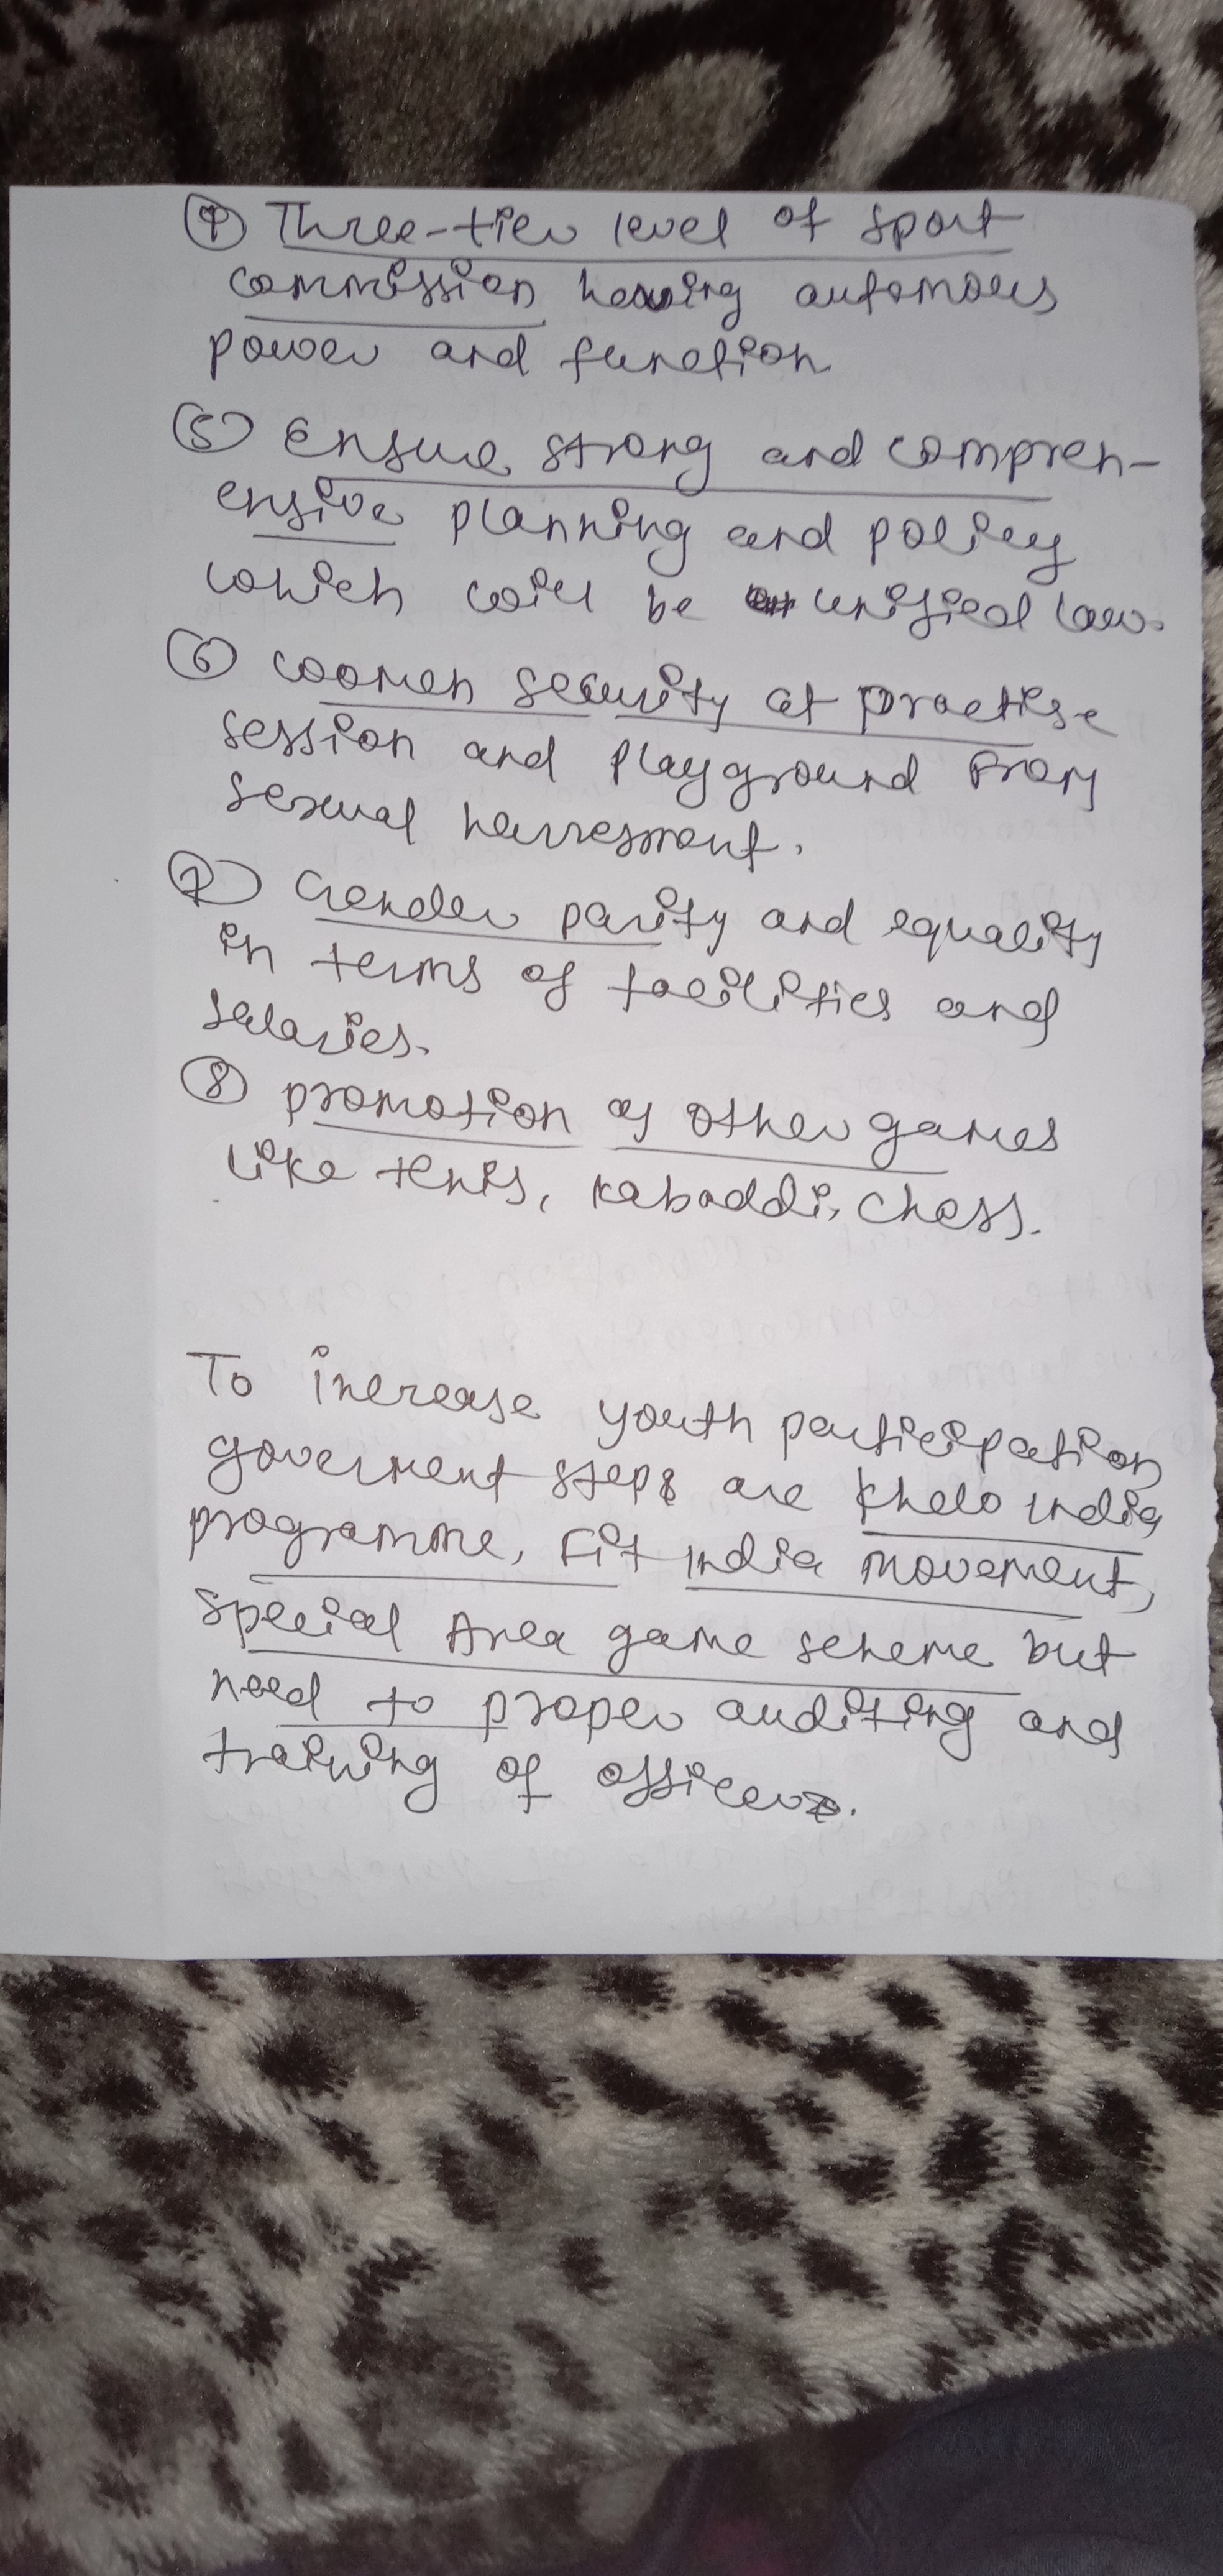 ④ Three-tier level of sport
commission having automous
power and function
⑤ Ensure strong and compreh-
ensive planning and policy
which will be unified law.
⑥ women security at practise
session and playground from
sexual harresment.
⑦ Gender parity and equality
in terms of facilities and
salaries.
⑧ promotion of other games
like tenis, kabaddi, chess.
To increase youth participation
government steps are khelo india
programme, Fit india movement,
special Area game scheme but
need to proper auditing and
training of officers.